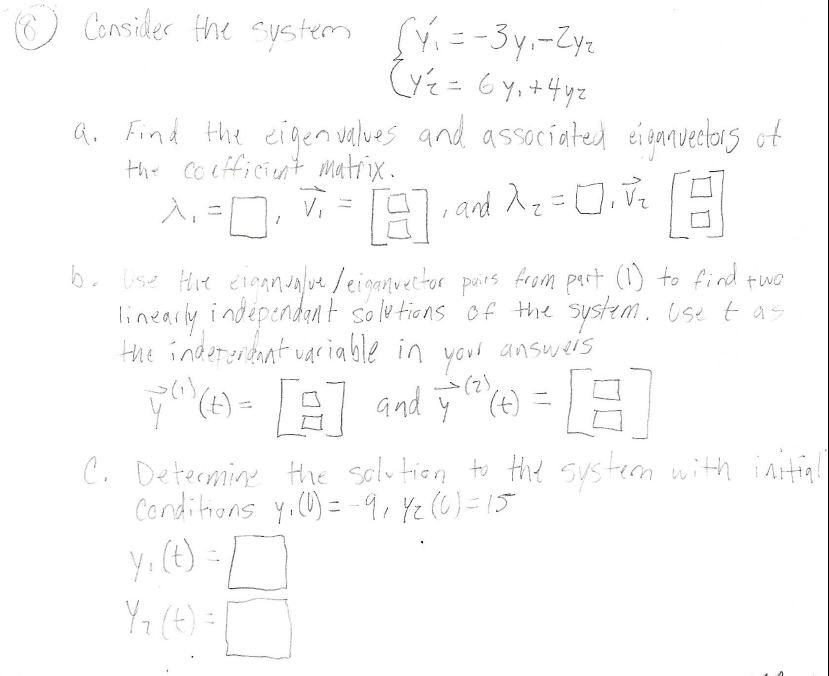 8 Consider the system { y₁' = -3y₁ - 2y₂
y₂' = 6y₁ + 4y₂
a. Find the eigenvalues and associated eiganvectors of
the coefficient matrix.
λ₁ = □, v⃗₁ = [□ □], and λ₂ = □, v⃗₂ [□ □]
b. Use the eiganvalue/eiganvector pairs from part (1) to find two
linearly independant solutions of the system. Use t as
the independant variable in your answers
y⃗⁽¹⁾(t) = [□ □] and y⃗⁽²⁾(t) = [□ □]
C. Determine the solution to the system with initial
conditions y₁(0) = -9, y₂(0) = 15
y₁(t) = □
y₂(t) = □